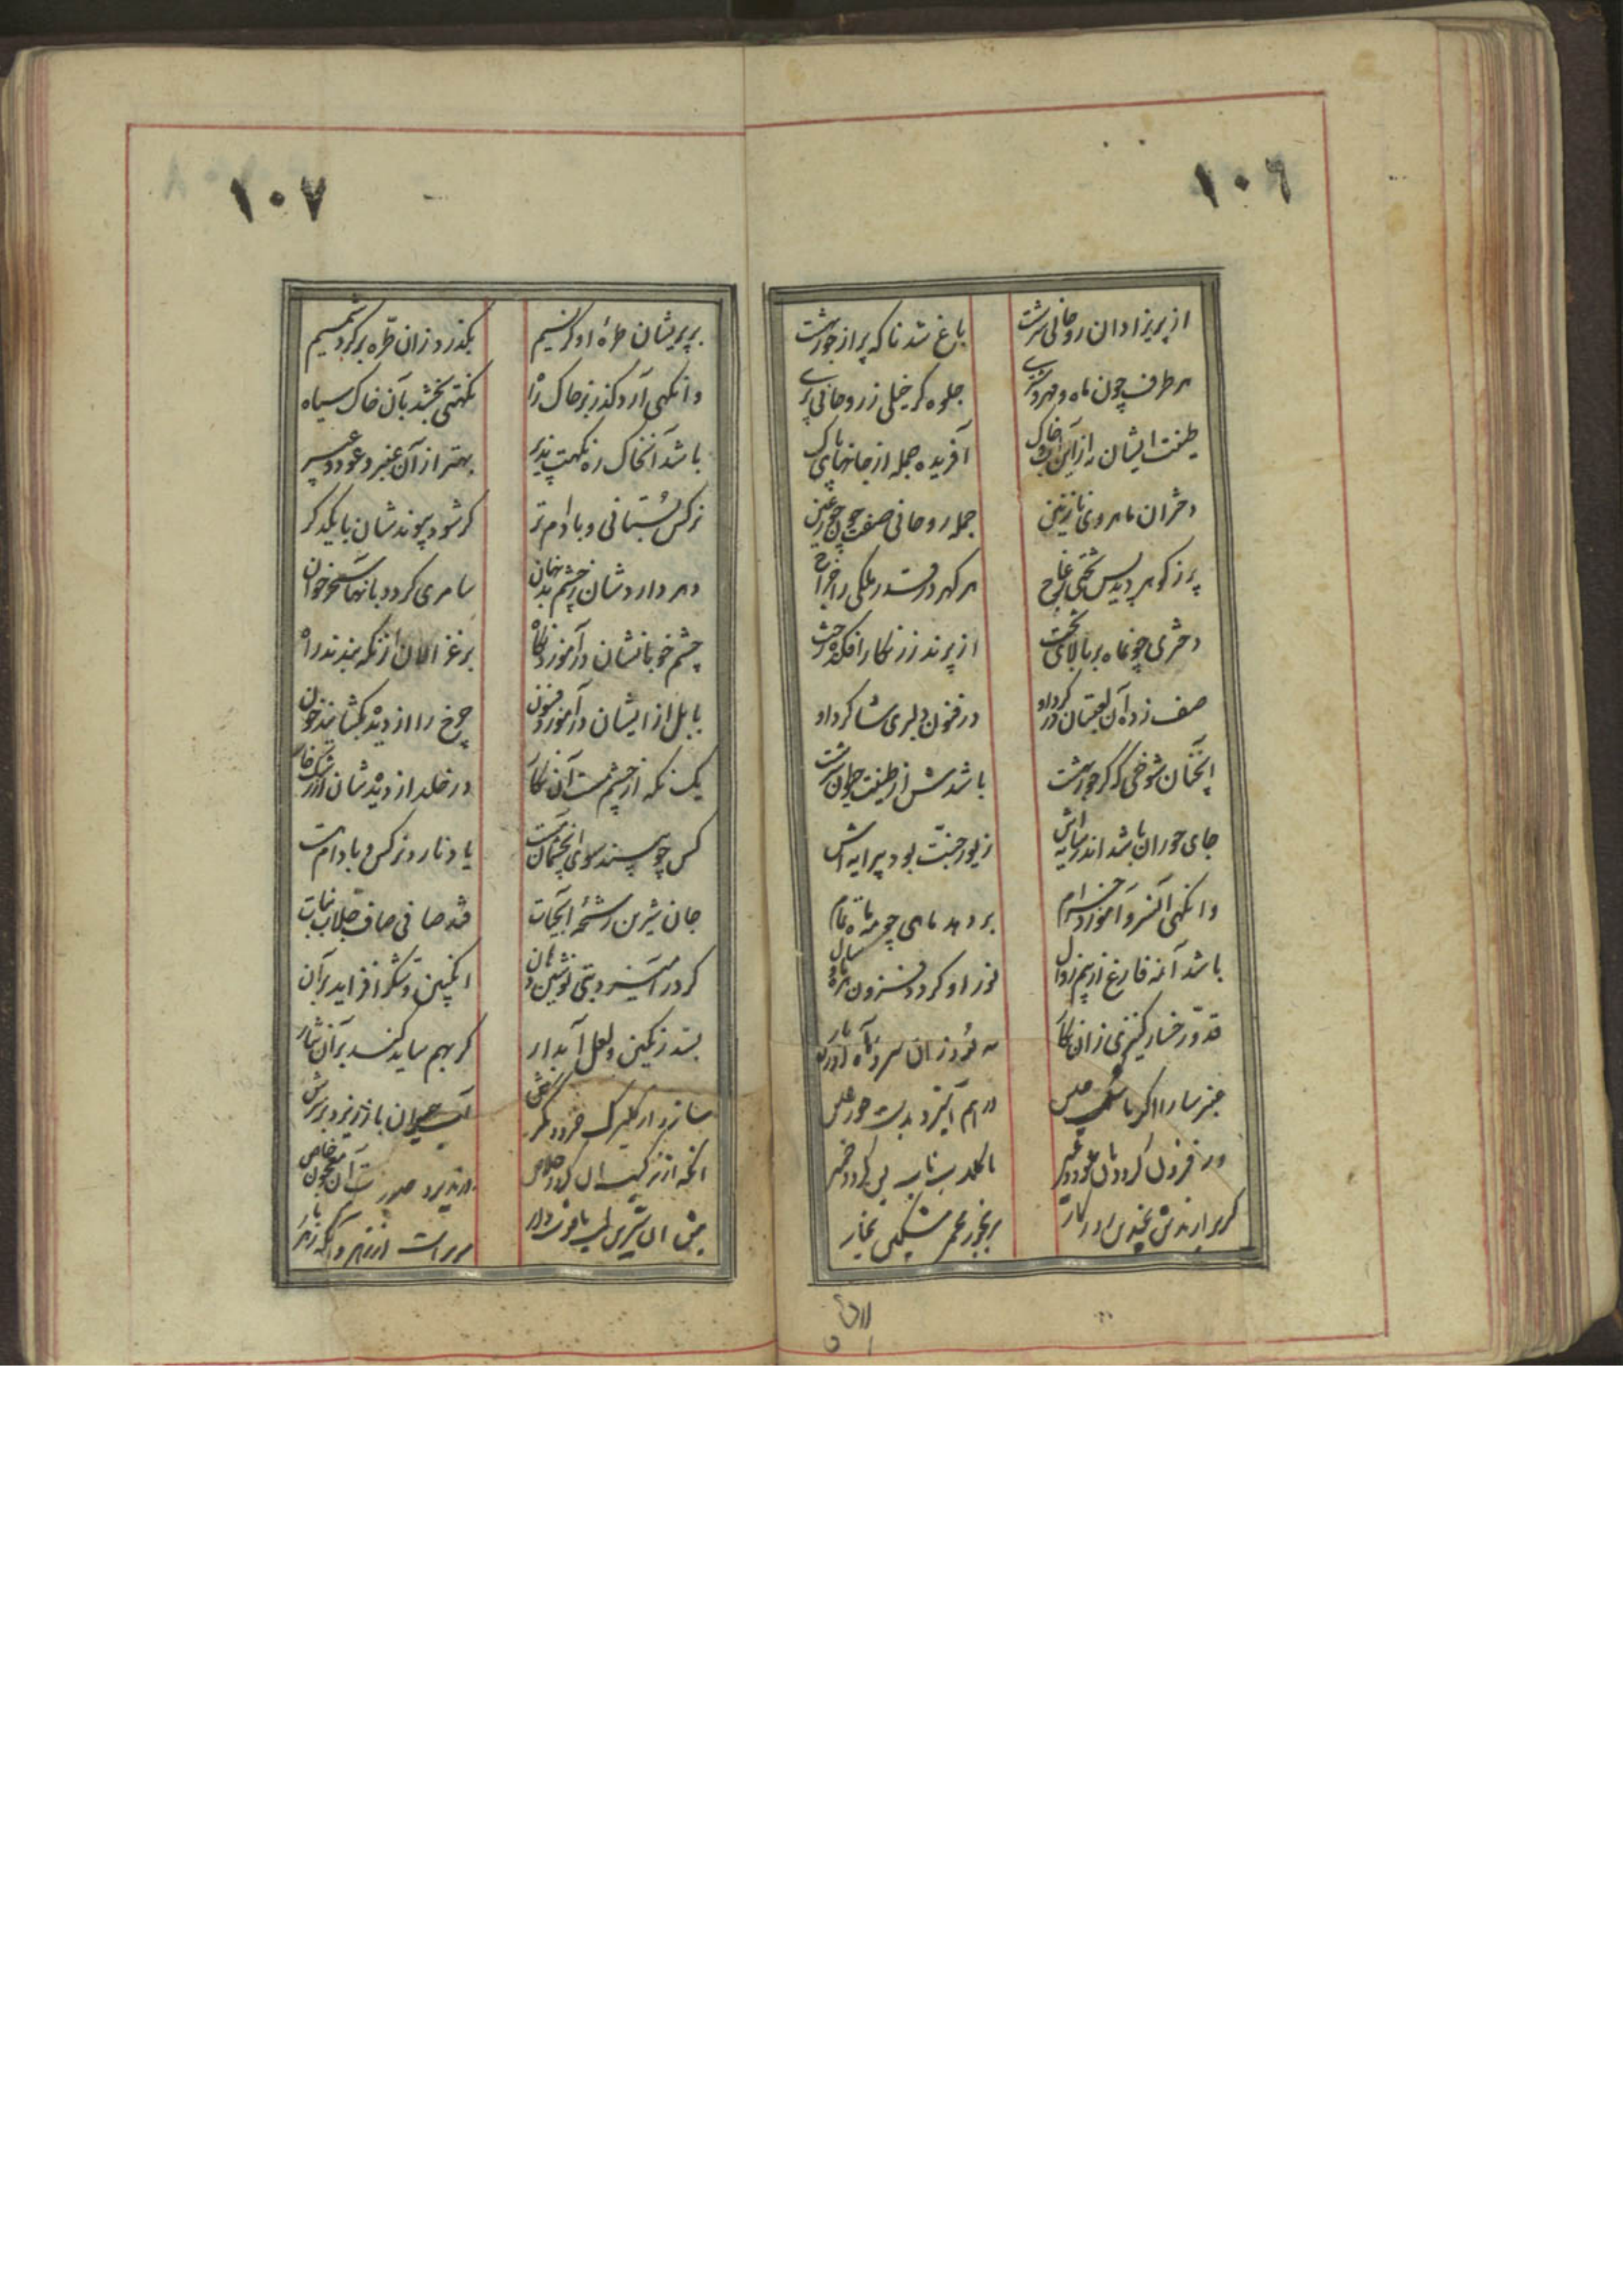 ١٠٦
از پریزادان روحانی سرشت
باغ شد ناکه پر از حور بهشت
هر طرف چون ماه و مهر
جلوه کر خیلی ز روحانی پری
طینت ایشان نه از این آب و خاک
آفریده جمله از جانهای پاک
دختران ماهروی نازنین
جمله روحانی صفت چون حور عین
پر ز کوهر دید پس تختی ز عاج
هر کهر در قدر ملکی را خراج
دختری چونماه بر بالای تخت
از پرند زرنکار افکنده رخت
صف زده آن لعبتان در کرد او
در فنون دلبری شاکرد او
آنچنان شوخی که کر حور بهشت
باشدش از طینت سرشت
جای حوران باشد اندر سایه اش
زیور جنت بود پیرایه اش
وانکهی آنسرو آموزد خرام
بر دهد ماهی چو مه تمام
باشد آنمه فارغ از بیم زوال
نور او کردد فزون هر ماه و سال
قد و رخسار کنیزی زان نکار
به بود زان سرو
عنبر سارا اکر با مشک
در هم آمیزد بدست حور عین
ور فزون کردد بآن عود و عبیر
با کلاب ناب
١٠٧
بر پریشان طره او کر نسیم
بکذرد زان طره بر کردد شمیم
وانکهی آرد کذر بر خاک راه
نکهتی بخشد بآن خاک سیاه
باشد آنخاک ره نکهت پذیر
بهتر از آن عنبر و عود و عبیر
نرکس بستانی و بادام تر
کر شود پیوندشان با یکدکر
دهر داردشان ز چشم بد نهان
سامری کردد بآنها سحر خوان
چشم خوبانشان درآموزد نکاه
بر غزالان از نکه بندند راه
بابل از ایشان درآموزد فنون
چرخ را از دیده بکشایند خون
یک نکه از چشم مست آن نکار
در خلد از دیدشان از رشک خار
کس چو بیند سوی آنچشمان مست
یاد نارد نرکس و بادام هست
جان شیرین رشحه آبحیات
قند صافی صاف جلاب نبات
کر در آمیزد بتی نوشین دهان
انکبین و شکر افزاید بر آن
بسد رنکین و لعل آبدار
کر بهم ساید کند بر آن نثار
سازد از کلبرک
آب حیوان باز ریزد بر سرش
آنچه از ترکیب آن کردد خلاص
در پذیرد صورت آن معجون خاص
پیش آن شیرین لب یاقوت